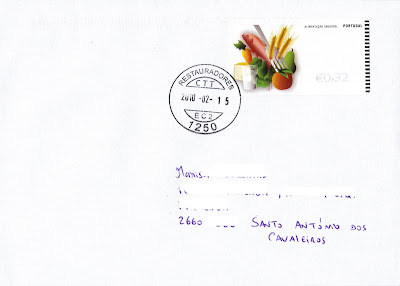 ALIMENTAÇÃO SAUDÁVEL PORTUGAL
€0,32
RESTAURADORES
CTT
2010-02-15
EC2
1250
2660 SANTO ANTÓNIO DOS
CAVALEIROS